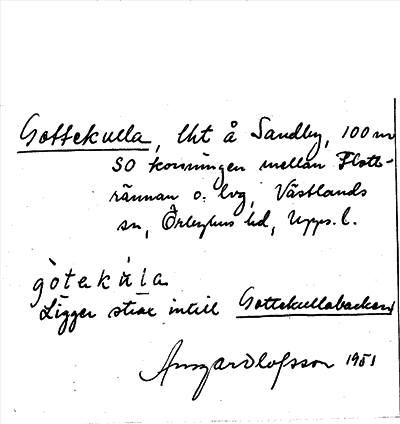 Gottekulla, lht å Sandby, 100 m
SO korsningen mellan Flott-
rännan o. lvg, Västlands
sn, Örbyhus hd, Upps. l.
gòtekúla
Ligger strax intill Gottekullabacken
Ansgar Olofsson 1951